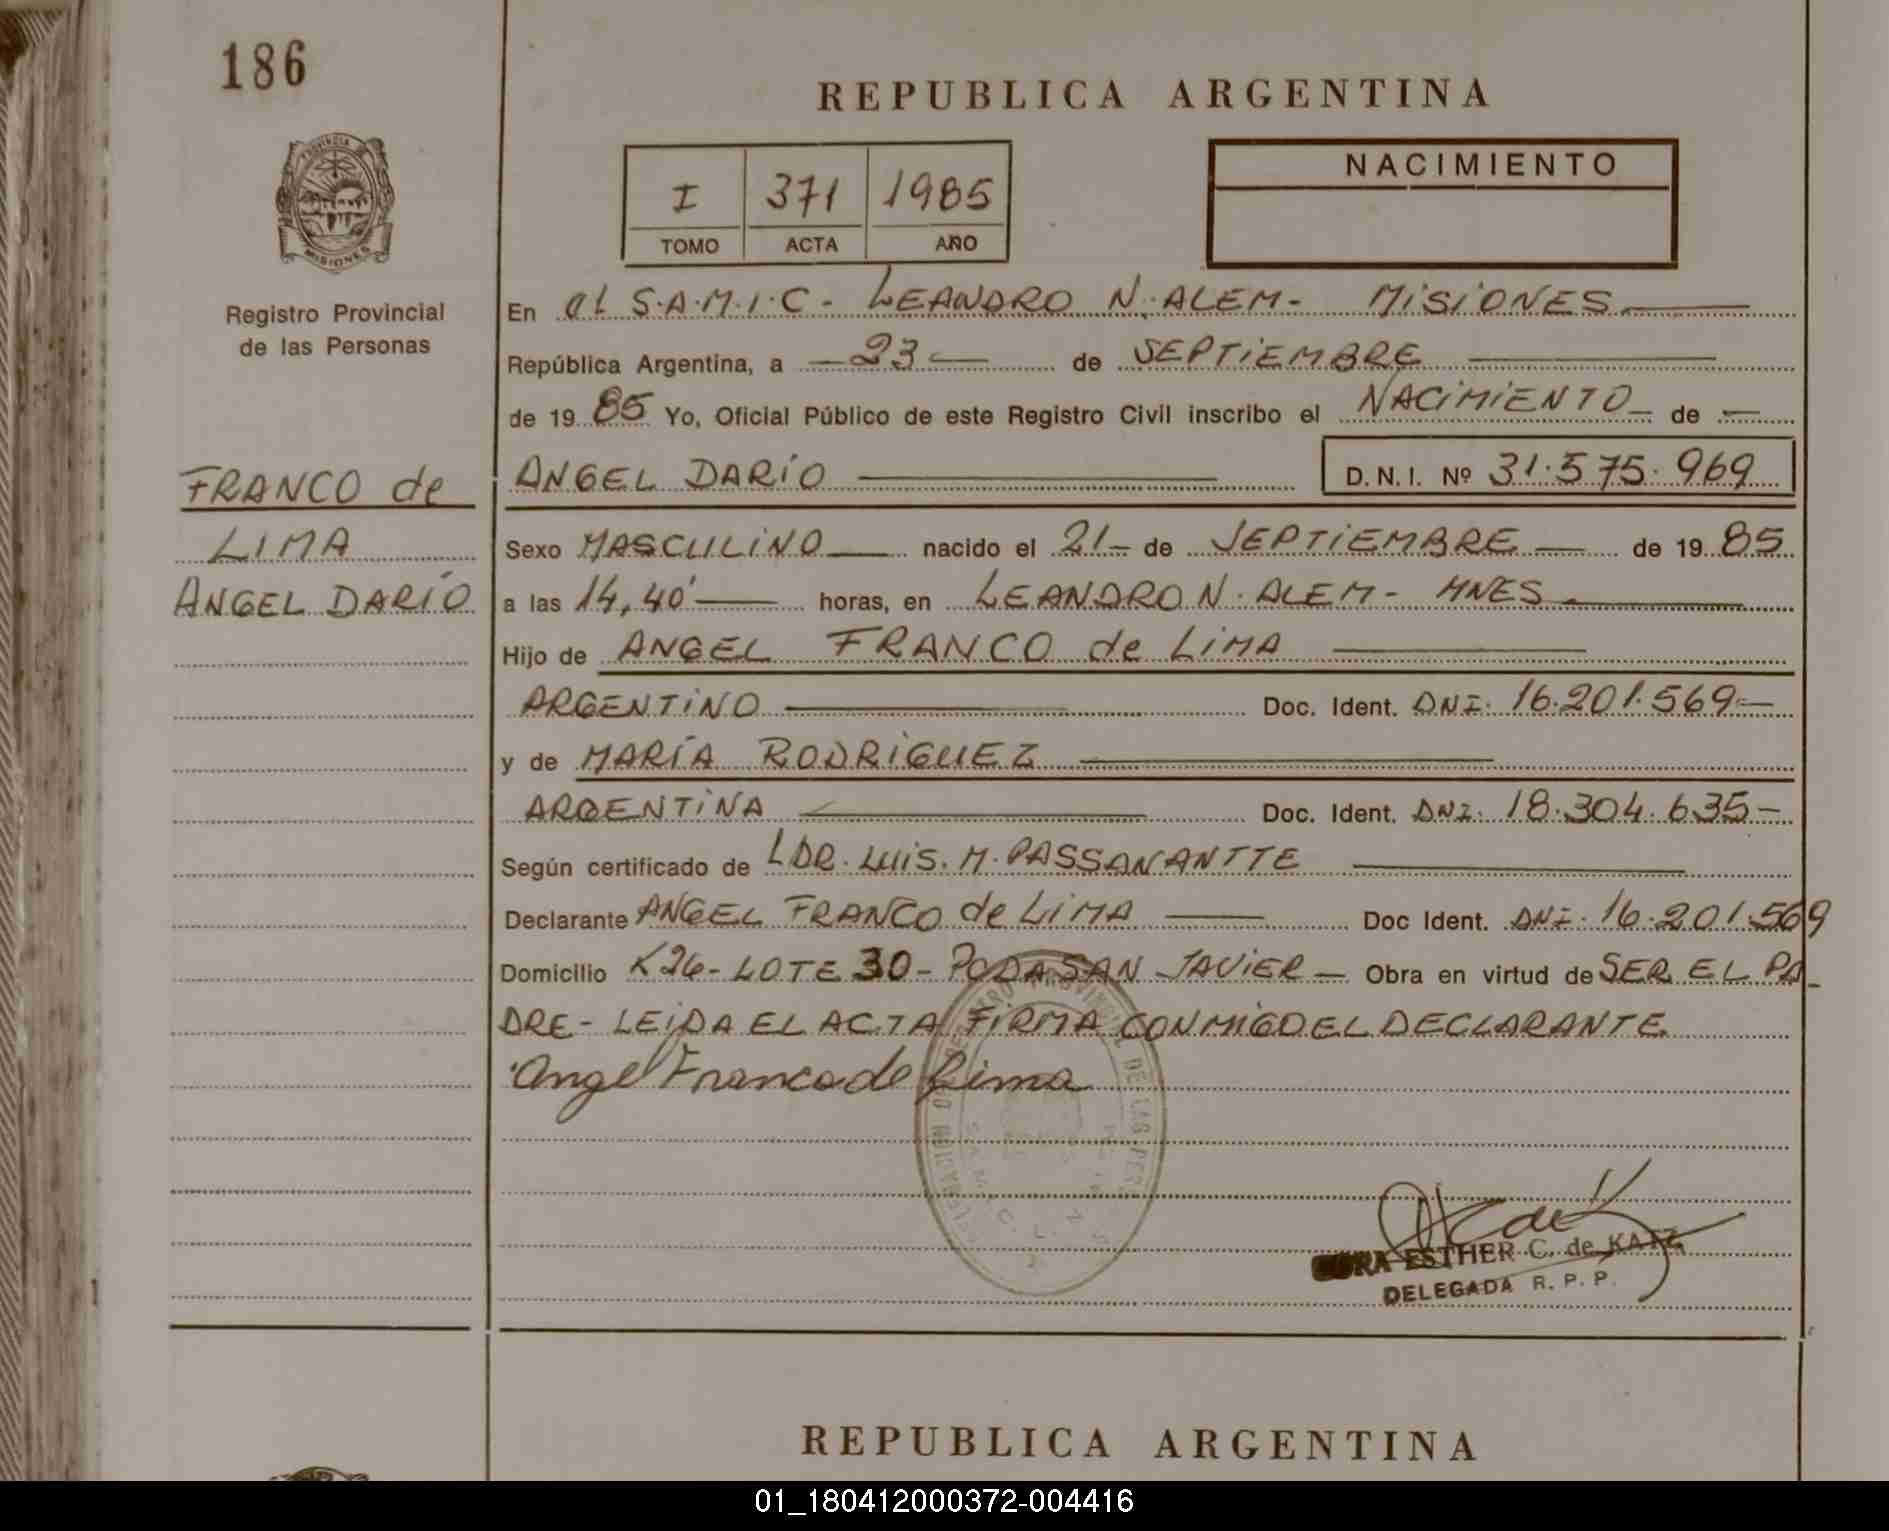 186
REPUBLICA ARGENTINA
PROVINCIA
MISIONES
Registro Provincial
de las Personas
I 371 1985
TOMO ACTA AÑO
NACIMIENTO
En OL S.A.M.I.C - LEANDRO N. ALEM - MISIONES
República Argentina, a 23 de SEPTIEMBRE
de 1985 Yo, Oficial Público de este Registro Civil inscribo el NACIMIENTO de
ANGEL DARÍO D.N.I. Nº 31.575.969
FRANCO de
LIMA
ANGEL DARÍO
Sexo MASCULINO nacido el 21 de SEPTIEMBRE de 1985
a las 14,40' horas, en LEANDRO N. ALEM - MNES.
Hijo de ANGEL FRANCO de LIMA
ARGENTINO Doc. Ident. DNI. 16.201.569
y de MARÍA RODRIGUEZ
ARGENTINA Doc. Ident. DNI. 18.304.635
Según certificado de LDR. LUIS. M. PASSANANTTE
Declarante ANGEL FRANCO de LIMA Doc Ident. DNI. 16.201.569
Domicilio K26 - LOTE 30 - PCDA SAN JAVIER Obra en virtud de SER EL PA-
DRE - LEIDA EL ACTA FIRMA CONMIGO EL DECLARANTE.
Angel Franco de Lima
DELEGACION DEL REGISTRO PROVINCIAL DE LAS PER
ESTHER C. de KATZ
DELEGADA R. P. P.
REPUBLICA ARGENTINA
01_180412000372-004416